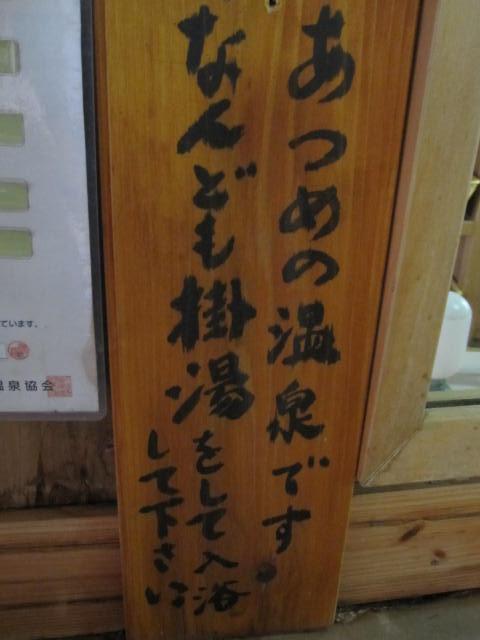 あつめの温泉です
なんども掛湯をして入浴
して下さい
ています。
温泉協会